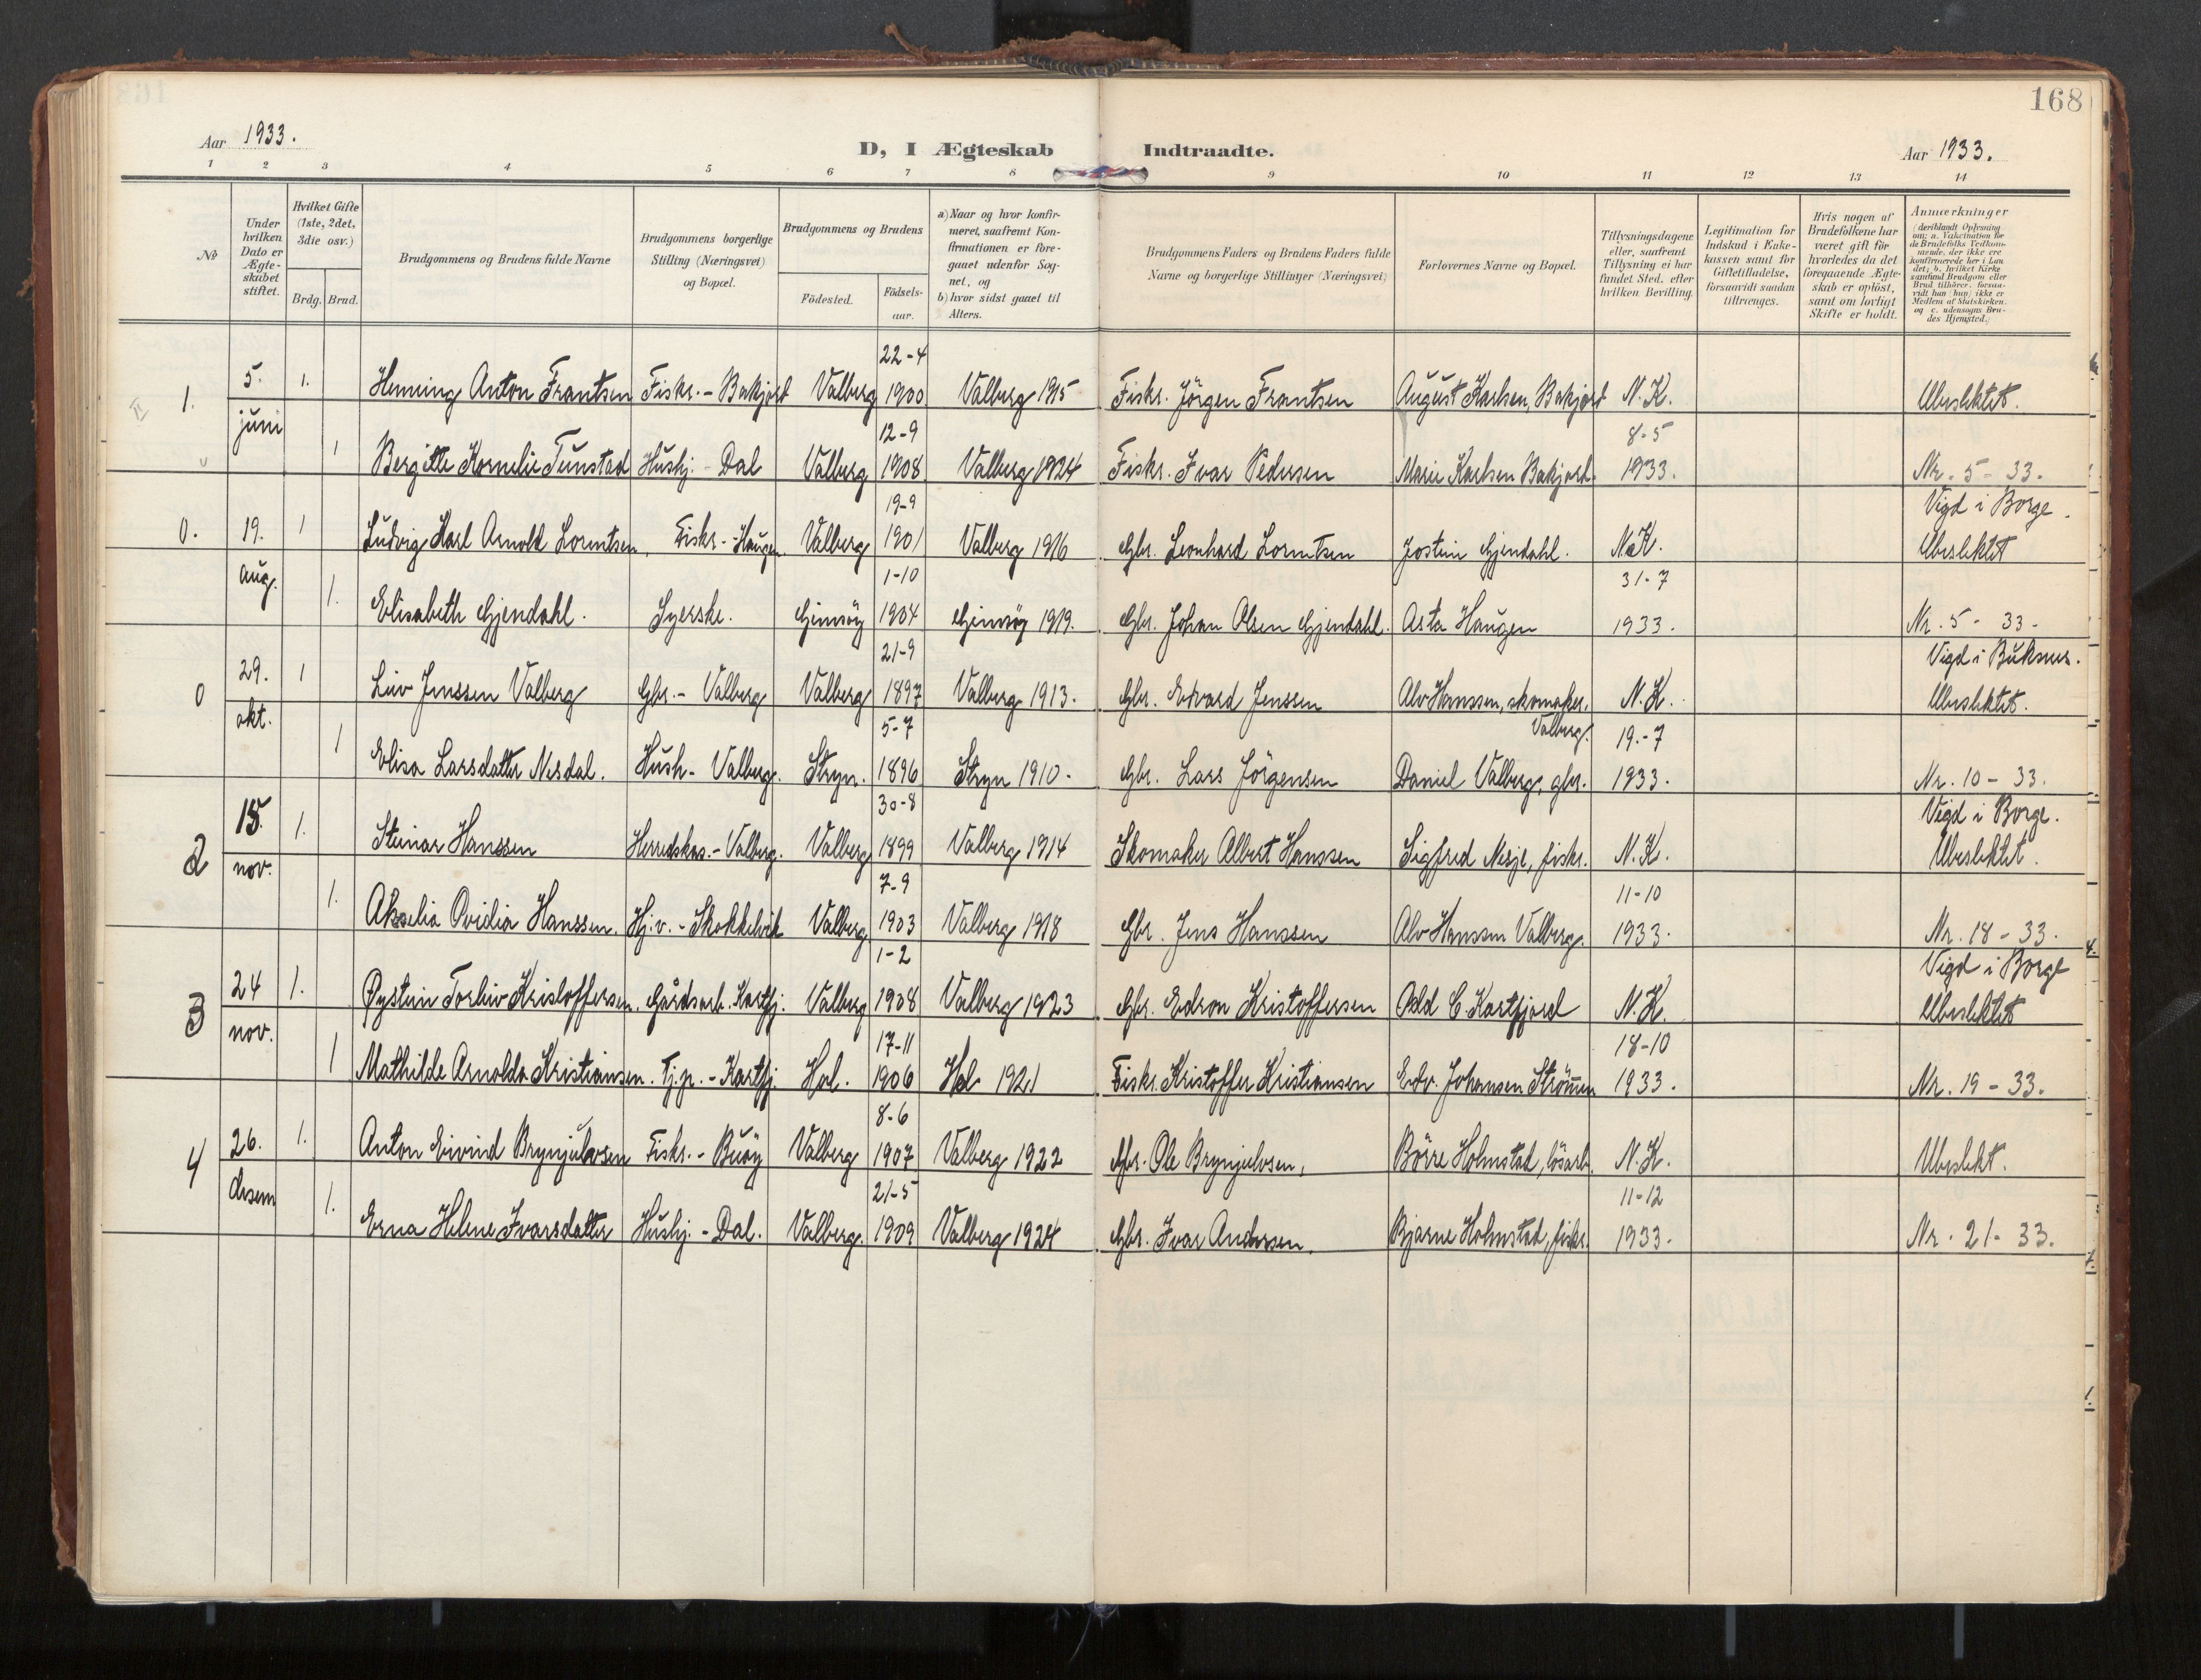 168
Aar 1933.
D, I Ægteskab Indtraadte.
Aar 1933.
1 2 3 4 5 6 7 8 9 10 11 12 13 14
No
Under hvilken Dato er Ægteskabet stiftet.
Hvilket Gifte (1ste, 2det, 3die osv.)
Brdg. Brud.
Brudgommens og Brudens fulde Navne
Brudgommens borgerlige Stilling (Næringsvei) og Bopæl.
Brudgommens og Brudens
Födested. Födselsaar.
a) Naar og hvor konfirmeret, saafremt Konfirmationen er foregaaet udenfor Sognet, og
b) hvor sidst gaaet til Alters.
Brudgommens Faders og Brudens Faders fulde Navne og borgerlige Stillinger (Næringsvei)
Forlovernes Navne og Bopæl.
Tillysningsdagene eller, saafremt Tillysning ei har fundet Sted, efter hvilken Bevilling.
Legitimation for Indskud i Enkekassen samt for Giftetilladelse, forsaavidt saadan tiltrænges.
Hvis nogen af Brudefolkene har været gift för hvorledes da det foregaaende Ægteskab er oplöst, samt om lovligt Skifte er holdt.
Anmærkninger (deriblandt Oplysning om: a. Vakcination for de Brudefolks Vedkommende, der ikke ere konfirmerede her i Landet; b. hvilket Kirkesamfund Brudgom eller Brud tilhörer, forsaavidt han (hun) ikke er Medlem af Statskirken, og c. udensogns Brudes Hjemsted.)
1. 5. juni 1. Henning Anton Frantsen Fiskr. - Bakjord Valberg 22-4 1900 Valberg 1915 Fiskr. Jörgen Frantsen August Karlsen, Bakjord N.K. Ubeslektet.
1 Bergitte Kornelie Tunstad Hushj. - Dal Valberg 12-9 1908 Valberg 1924 Fiskr. Ivar Pedersen Marie Karlsen Bakjord. 8-5 1933. Nr. 5 - 33.
0. 19. aug. 1 Ludvig Karl Arnold Lorentsen. Fiskr. - Haugen. Valberg 19-9 1901 Valberg 1916 Gbr. Leonhard Lorentsen Jostein Gjendahl. N.K. Vigd i Borge. Ubeslektet
1. Elisabeth Gjendahl. Syerske. Gimsöy 1-10 1904 Gimsöy 1919. Gbr. Johan Olsen Gjendahl. Asta Haugen 31-7 1933. Nr. 5 - 33 -
0 29. okt. 1 Liiv Jenssen Valberg Gbr. - Valberg Valberg 21-9 1897 Valberg 1913. Gbr. Edvard Jenssen Alv Hanssen, skomaker, Valberg. N.K. Vigd i Buksnes. Ubeslektet.
1 Elisa Larsdatter Nesdal. Hush - Valberg. Stryn. 5-7 1896 Stryn 1910 - Gbr. Lars Jörgensen Daniel Valberg, gbr. 19.-7 1933. Nr. 10 - 33.
2 15. nov. 1. Steinar Hanssen Herredskas. - Valberg. Valberg 30-8 1899 Valberg 1914 Skomaker Albert Hanssen Sigfred Nesje, fiskr. N.K. Vigd i Borge. Ubeslektet.
1. Akselia Ovidia Hanssen. Hj.v. - Skokkelvik Valberg 7-9 1903 Valberg 1918 Gbr. Jens Hanssen Alv Hanssen Valberg. 11-10 1933. Nr. 18 - 33.
3 24 nov. 1. Øystein Torleiv Kristoffersen. Gårdsarb. Kartfj. Valberg 1-2 1908 Valberg 1923 Gbr. Edron Kristoffersen Odd C. Kartfjord N.K. Vigd i Borge Ubeslektet
1 Mathilde Arnolda Kristiansen. Tj.p. - Kartfj. Hol. 17-11 1906 Hol 1921 Fiskr. Kristoffer Kristiansen Edv. Johansen Strömmen 18-10 1933. Nr. 19 - 33.
4 26. desem 1. Anton Eivind Brynjulvsen Fiskr. - Buöy Valberg 8-6 1907 Valberg 1922 Gbr. Ole Brynjulvsen, Börre Holmstad, lösarb. N.K. Ubeslekt.
1. Erna Helene Ivarsdatter Hushj. - Dal. Valberg. 21-5 1909 Valberg 1924 Gbr. Ivar Andersen. Bjarne Holmstad, fiskr. 11-12 1933. Nr. 21 - 33.